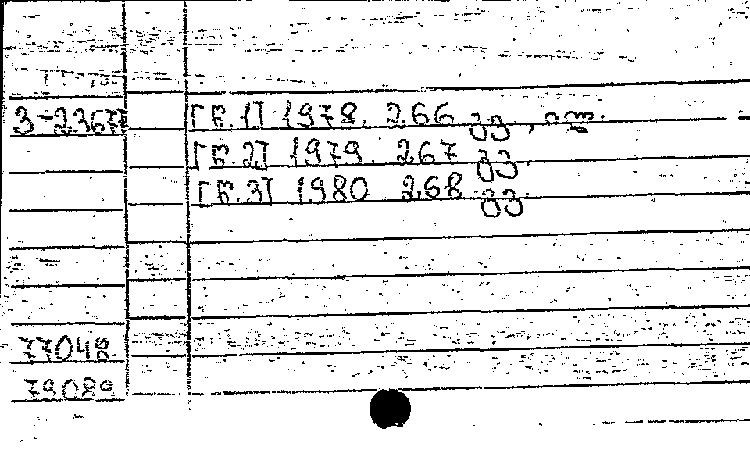 3-23677 [წ.1] 1978. 266 გვ., ილ.
[წ.2] 1979. 267 გვ.
[წ.3] 1980 268 გვ.
77048
79089